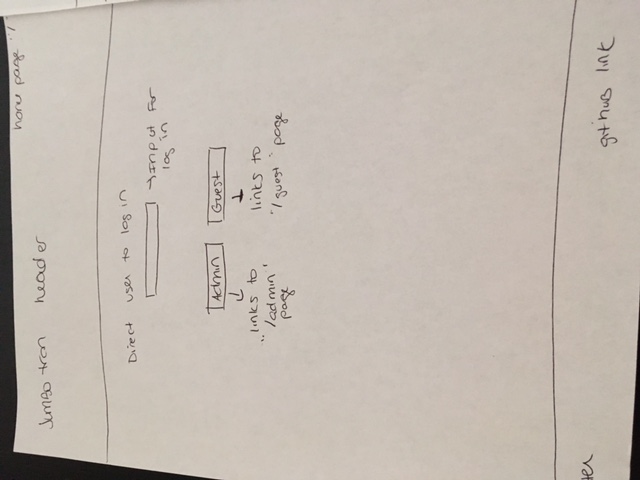 home page "/
Jumbotron header
Direct user to log in
→Input for
log in
Admin
Guest
links to
"/admin"
page
links to
"/guest" page
github link